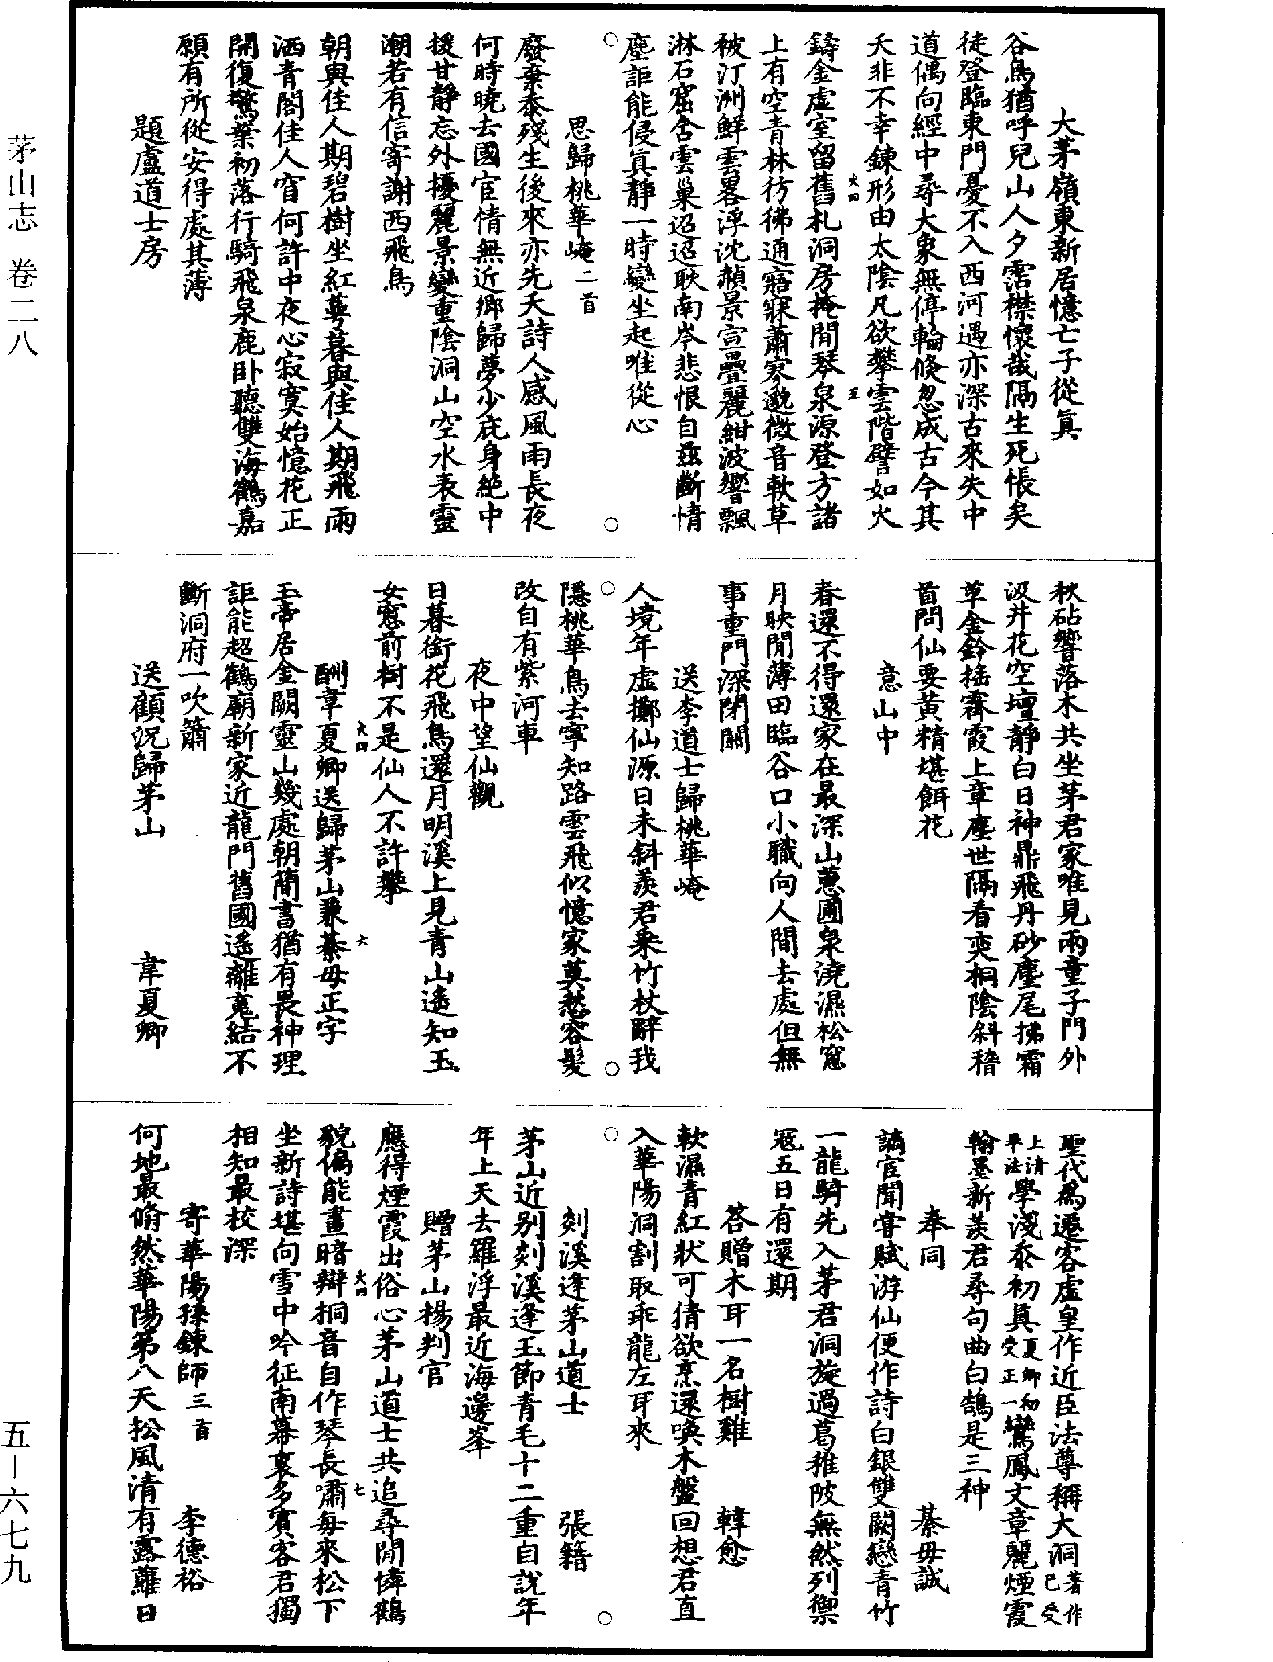 茅山志 卷二八
五—六七九
大茅嶺東新居憶亡子從真
谷鳥猶呼兒山人夕霑襟懷哉隔生死悵矣
徒登臨東門憂不入西河遇亦深古來失中
道偶向經中尋大象無停輪倏忽成古今其
夭非不幸鍊形由太陰凡欲攀雲階譬如火
鑄金虛室留舊札洞房掩閒琴泉源登方諸
上有空青林彷彿通寤寐蕭寥邈微音軟草
被汀洲鮮雲畧浮沈赪景宣疊麗紺波響飄
淋石窟含雲巢迢迢耿南岑悲恨自茲斷情
塵詎能侵真靜一時變坐起唯從心
思歸桃華崦二首
廢棄忝殘生後來亦先夭詩人感風雨長夜
何時曉去國宦情無近鄉歸夢少庇身絕中
援甘靜忘外擾麗景變重陰洞山空水表靈
潮若有信寄謝西飛鳥
朝與佳人期碧樹坐紅蕚暮與佳人期飛雨
洒青閣佳人窅何許中夜心寂寞始憶花正
開復驚葉初落行騎飛泉鹿卧聽雙海鶴嘉
願有所從安得處其薄
題盧道士房
秋砧響落木共坐茅君家唯見兩童子門外
汲井花空壇靜白日神鼎飛丹砂塵尾拂霜
草金鈴搖霽霞上章塵世隔看奕桐陰斜稽
首問仙要黃精堪餌花
意山中
春還不得還家在最深山蕙圃泉澆濕松窗
月映閒薄田臨谷口小職向人間去處但無
事重門深閉關
送李道士歸桃華崦
人境年虛擲仙源日未斜羨君乘竹杖辭我
隱桃華鳥去寧知路雲飛似憶家莫愁容髮
改自有紫河車
夜中望仙觀
日暮銜花飛鳥還月明溪上見青山遙知玉
女窓前樹不是仙人不許攀
酬韋夏卿送歸茅山兼綦毋正字
玉帝居金闕靈山幾處朝簡書猶有畏神理
詎能超鶴廟新家近龍門舊國遙離鬼結不
斷洞府一吹簫
送顧況歸茅山 韋夏卿
聖代為遷客虛皇作近臣法尊稱大洞著作已受
上清畢法學淺忝初真夏卿初受正一鸞鳳文章麗煙霞
翰墨新羨君尋句曲白鵠是三神
奉同 綦毋誠
謫宦聞嘗賦游仙便作詩白銀雙闕戀青竹
一龍騎先入茅君洞旋過葛稚陂無然列禦
寇五日有還期
荅贈木耳一名樹雞 韓愈
軟濕青紅狀可猜欲烹還喚木盤回想君直
入華陽洞割取乖龍左耳來
剡溪逢茅山道士 張籍
茅山近别剡溪逢玉節青毛十二重自說年
年上天去羅浮最近海邊峯
贈茅山楊判官
應得煙霞出俗心茅山道士共追尋閒憐鶴
貌偏能畫暗辯桐音自作琴長嘯每來松下
坐新詩堪向雪中吟征南幕裏多賓客君獨
相知最校深
寄華陽孫鍊師三首 李德裕
何地最翛然華陽第八天松風清有露蘿日